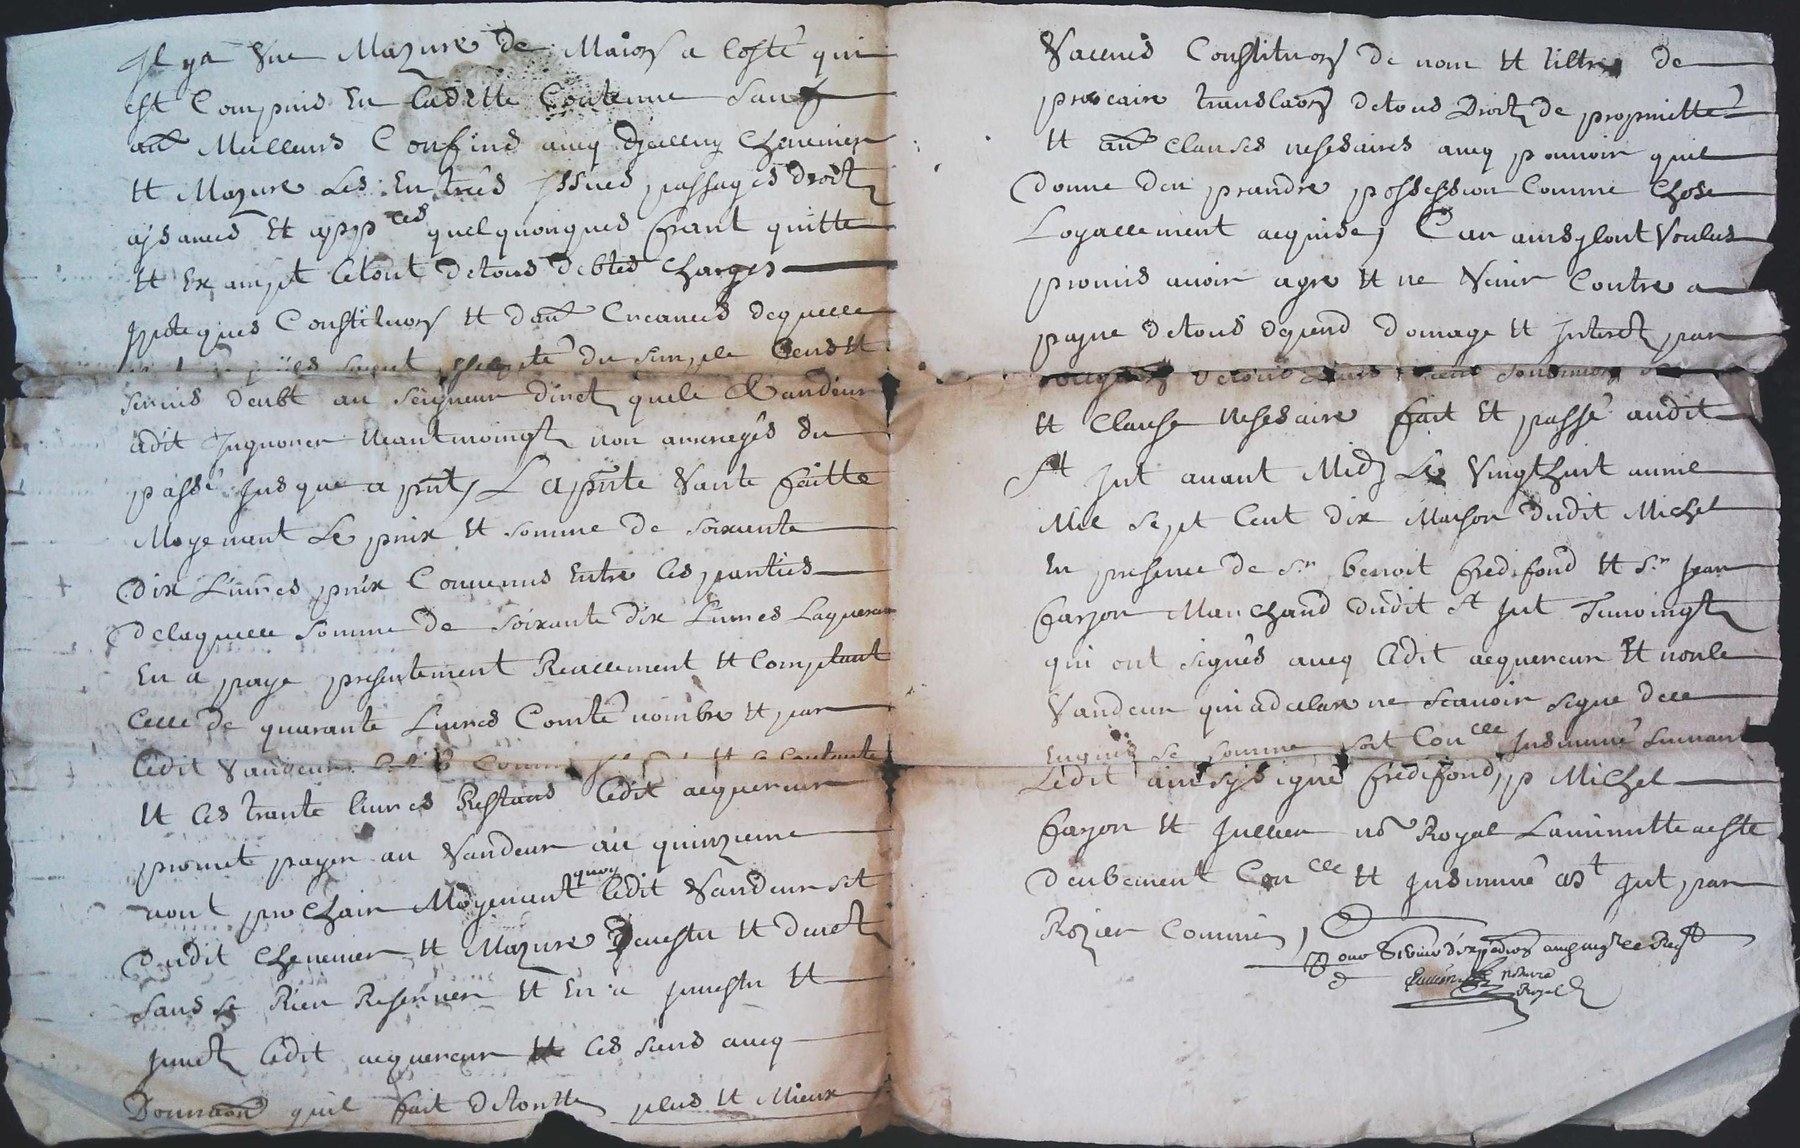 Il ya Une Mazure de Maion a Costé qui
est Compris En Ladette Contenue sauf
aux Meilleurs Confins aveq Jcelluy Chenevier
et Mazure Les Entrées Issues passages droits
aysances et app^ces quelquonques franct quitte
et Exampt letout detous debtes Charges
ypoteques Constituon et d'aux Creances dequelle
soyent du simple Cens et
servis deubt au seigneur direct quele Vandeur
adit Ingnorer neantmoingt non arrerages du
passé jusque a pnt, Lapnte Vante faitte
Moyenant Le prix et somme de soixante
Dix Livres prix Convenus Entre les parties
delaquelle somme de soixante dix Livres Laquereur
En a paye presentement Reallement et Comptant
Celle de quarante Livres Comté nombre et par
Ledit Vandeur et se Contante
et les trante livres Restans Ledit acquereur
promet payer au Vandeur au quinzieme
aout prochain Moyenant quoy Ledit Vandeur set
Dudit Chenevier et Mazure Devestu et devet
sans se Rien Reserver et En a Jnvestu et
Jnvet Ledit acquereur et les siens aveq
Donnaon quil fait detoutte plus et Mieux
Vallens Constituon de nom et tiltre de
precaire translaon detous Droits de proprietté
et aux Clauses nessesaires aveq pouvoir quil
Donne den prandre possession Comme Chose
Loyallement acquise, Car ainsy lont Voulus
promis avoir agre et ne Venir Contre a
payne detous depend domage et Interet par
detout
et Clause nessesaire fait et passé audit
St Jut avant Midy Le Vingthuit avril
Mil sept Cent dix Maison dudit Michel
En presence de Sr benoit fredifond et Sr Jean
farjon Marchand dudit St Jut Temoingt
qui ont signés aveq Ledit acquereur et nonle
Vandeur quiadeclare ne scavoir signe dece
Enquis se somme soit Con^cllé Insinnué suivant
Ledit ainsy signe fredifond, p Michel
farjon et Jullien no^re Royal Laminutte aesté
deubement Con^cllé et Insinnué aSt Jut par
Rozier Commis,
Pour
notaire
Royal